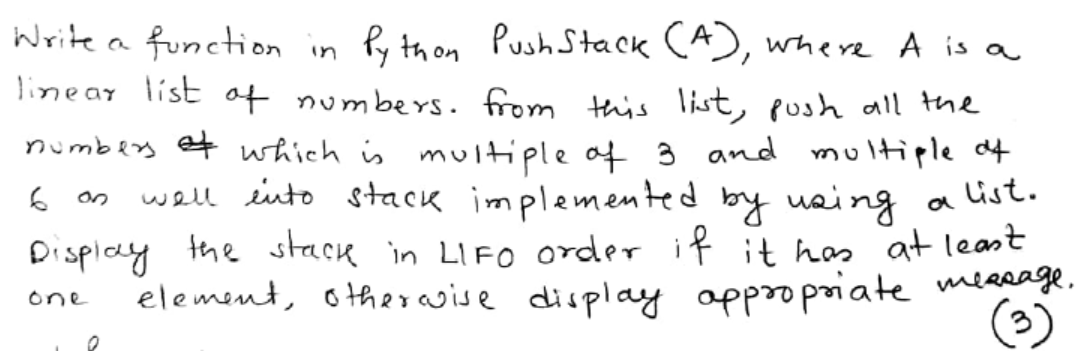 Write a function in Python PushStack (A), where A is a
linear list of numbers. from this list, push all the
numbers which is multiple of 3 and multiple of
6 as well into stack implemented by using a list.
Display the stack in LIFO order if it has at least
one element, otherwise display appropriate message.
(3)